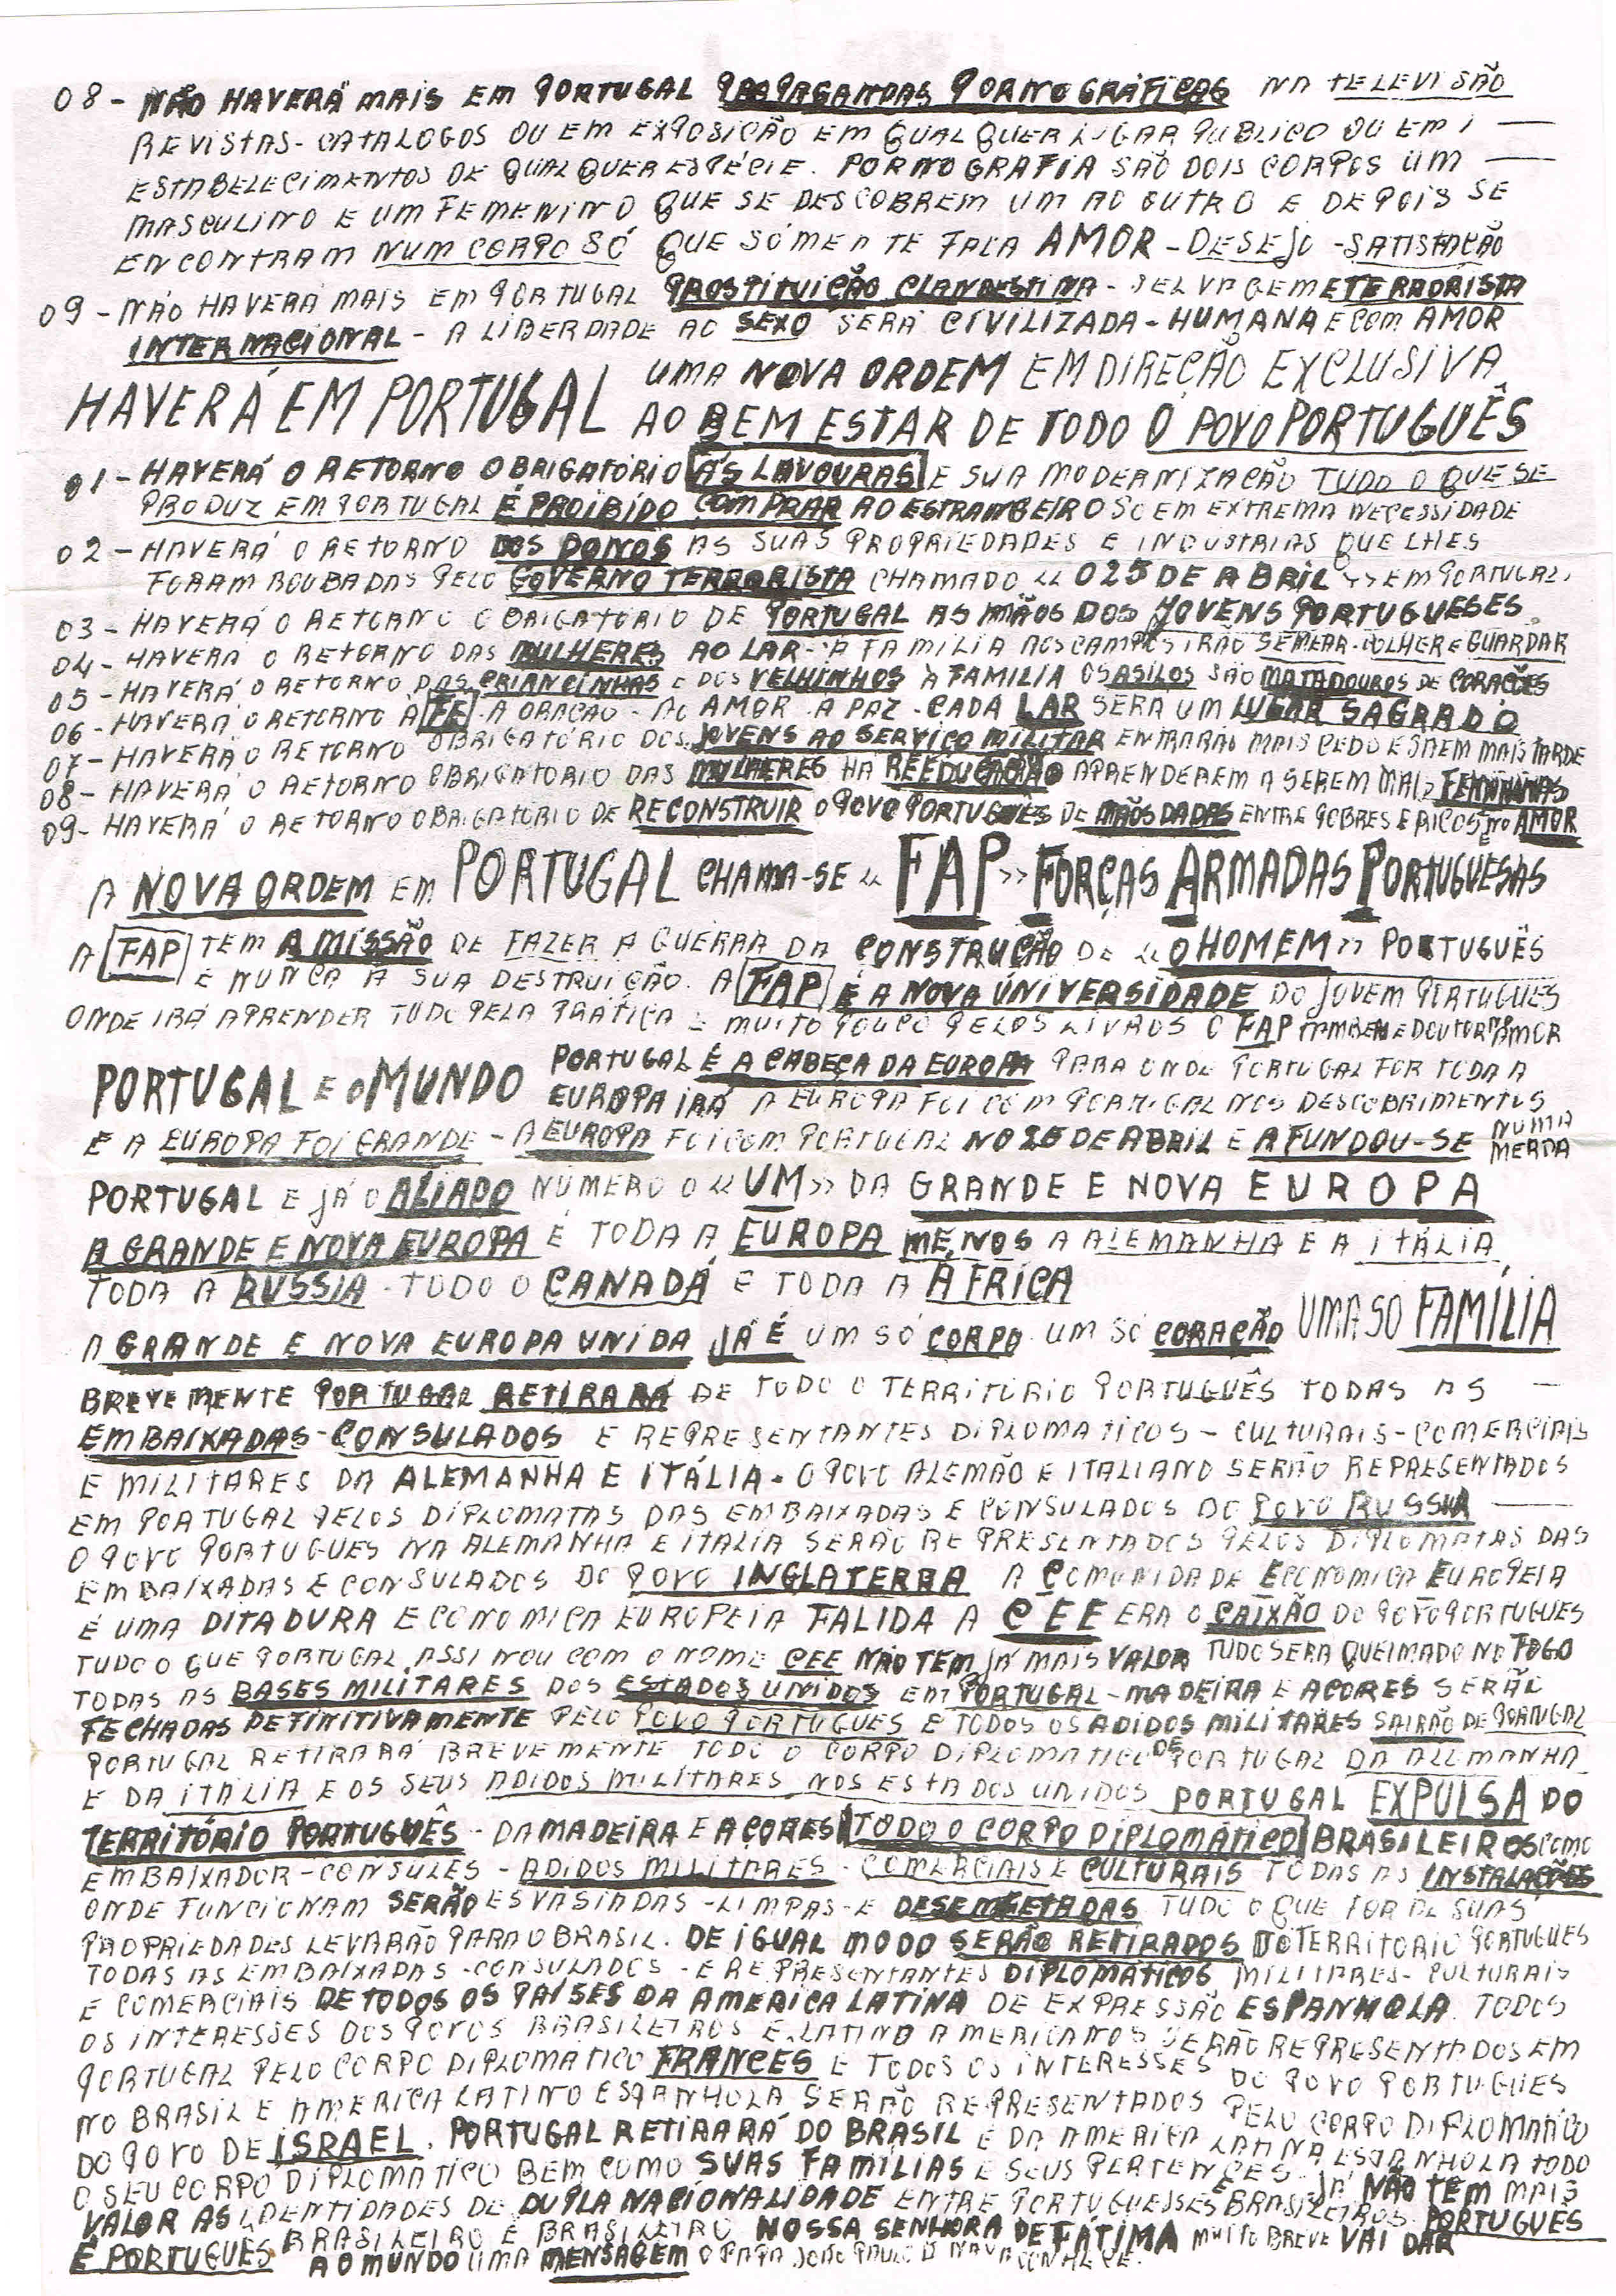 08 - NÃO HAVERÁ MAIS EM PORTUGAL PROPAGANDAS PORNOGRÁFICAS NA TELEVISÃO
REVISTAS - CATALOGOS OU EM EXPOSIÇÃO EM QUALQUER LUGAR PUBLICO OU EM
ESTABELECIMENTOS DE QUALQUER ESPÉCIE. PORNOGRAFIA SÃO DOIS CORPOS UM
MASCULINO E UM FEMENINO QUE SE DESCOBREM UM AO OUTRO E DEPOIS SE
ENCONTRAM NUM CORPO SÓ QUE SÓMENTE FALA AMOR - DESEJO - SATISFAÇÃO
09 - NÃO HAVERÁ MAIS EM PORTUGAL PROSTITUIÇÃO CLANDESTINA - SELVAGEM E TERRORISTA
INTERNACIONAL - A LIBERDADE AO SEXO SERÁ CIVILIZADA - HUMANA E COM AMOR
HAVERÁ EM PORTUGAL UMA NOVA ORDEM EM DIREÇÃO EXCLUSIVA
AO BEM ESTAR DE TODO O POVO PORTUGUÊS
01 - HAVERÁ O RETORNO OBRIGATÓRIO ÁS LAVOURAS E SUA MODERNIZAÇÃO TUDO O QUE SE
PRODUZ EM PORTUGAL É PROIBIDO COMPRAR AO ESTRANGEIRO SO EM EXTREMA NECESSIDADE
02 - HAVERÁ O RETORNO DOS DONOS AS SUAS PROPRIEDADES E INDUSTRIAS QUE LHES
FORAM ROUBADAS PELO GOVERNO TERRORISTA CHAMADO « O 25 DE ABRIL » EM PORTUGAL,
03 - HAVERÁ O RETORNO OBRIGATÓRIO DE PORTUGAL AS MÃOS DOS JOVENS PORTUGUESES.
04 - HAVERÁ O RETORNO DAS MULHERES AO LAR - A FAMILIA NOS CAMPOS IRÃO SEMEAR - COLHER E GUARDAR
05 - HAVERÁ O RETORNO DAS CRIANCINHAS E DOS VELHINHOS À FAMILIA OS ASILOS SÃO MATADOUROS DE CORAÇÕES
06 - HAVERÁ O RETORNO A FÉ - A ORAÇÃO - AO AMOR - A PAZ - CADA LAR SERÁ UM LUGAR SAGRADO
07 - HAVERÁ O RETORNO OBRIGATÓRIO DOS JOVENS AO SERVIÇO MILITAR ENTRARÃO MAIS CEDO E SAEM MAIS TARDE
08 - HAVERÁ O RETORNO OBRIGATORIO DAS MULHERES HA REEDUCAÇÃO APRENDEREM A SEREM MAIS FEMININAS
09 - HAVERÁ O RETORNO OBRIGATÓRIO DE RECONSTRUIR O POVO PORTUGUÊS DE MÃOS DADAS ENTRE POBRES E RICOS E NO AMOR
A NOVA ORDEM EM PORTUGAL CHAMA-SE « FAP » FORÇAS ARMADAS PORTUGUESAS
A FAP TEM A MISSÃO DE FAZER A GUERRA DA CONSTRUÇÃO DE « O HOMEM » PORTUGUÊS
E NUNCA A SUA DESTRUIÇÃO. A FAP É A NOVA ÚNIVERSIDADE DO JOVEM PORTUGUES
ONDE IRÁ APRENDER TUDO PELA PRÁTICA E MUITO POUCO PELOS LIVROS O FAP TAMBEM E DOUTOR NO AMOR
PORTUGAL E O MUNDO PORTUGAL É A CABEÇA DA EUROPA PARA ONDE PORTUGAL FOR TODA A
EUROPA IRÁ A EUROPA FOI COM PORTUGAL NOS DESCOBRIMENTOS
E A EUROPA FOI GRANDE - A EUROPA FOI COM PORTUGAL NO 25 DE ABRIL E AFUNDOU-SE NUMA MERDA
PORTUGAL E JÁ O ALIADO NÚMERO O « UM » DA GRANDE E NOVA EUROPA
A GRANDE E NOVA EUROPA É TODA A EUROPA MENOS A ALEMANHA E A ITÁLIA,
TODA A RUSSIA - TODO O CANADÁ E TODA A ÁFRICA
A GRANDE E NOVA EUROPA UNIDA JÁ É UM SÓ CORPO UM SÓ CORAÇÃO UMA SO FAMÍLIA
BREVEMENTE PORTUGAL RETIRARÁ DE TODO O TERRITÓRIO PORTUGUÊS TODAS AS
EMBAIXADAS - CONSULADOS E REPRESENTANTES DIPLOMATICOS - CULTURAIS - COMERCIAIS
E MILITARES DA ALEMANHA E ITÁLIA - O POVO ALEMÃO E ITALIANO SERÃO REPRESENTADOS
EM PORTUGAL PELOS DIPLOMATAS DAS EMBAIXADAS E CONSULADOS DO POVO RUSSIA
O POVO PORTUGUES NA ALEMANHA E ITALIA SERÃO REPRESENTADOS PELOS DIPLOMATAS DAS
EMBAIXADAS E CONSULADOS DO POVO INGLATERRA A COMUNIDADE ECONOMICA EUROPEIA
É UMA DITADURA ECONOMICA EUROPEIA FALIDA A CEE ERA O CAIXÃO DO POVO PORTUGUES
TUDO O QUE PORTUGAL ASSINOU COM O NOME CEE NÃO TEM JÁ MAIS VALOR TUDO SERÁ QUEIMADO NO FOGO
TODAS AS BASES MILITARES DOS ESTADOS UNIDOS EM PORTUGAL - MADEIRA E AÇORES SERÃO
FECHADAS DEFINITIVAMENTE PELO POVO PORTUGUES E TODOS OS ADIDOS MILITARES SAIRÃO DE PORTUGAL
PORTUGAL RETIRARÁ BREVEMENTE TODO O CORPO DIPLOMATICO DE PORTUGAL DA ALEMANHA
E DA ITÁLIA E OS SEUS ADIDOS MILITARES NOS ESTADOS UNIDOS PORTUGAL EXPULSA DO
TERRITÓRIO PORTUGUÊS - DA MADEIRA E AÇORES TODO O CORPO DIPLOMÁTICO BRASILEIROS COMO
EMBAIXADOR - CONSULES - ADIDOS MILITARES - COMERCIAIS E CULTURAIS TODAS AS INSTALAÇÕES
ONDE FUNCIONAM SERÃO ESVASIADAS - LIMPAS - E DESEMFETADAS TUDO O QUE FOR DE SUAS
PROPRIEDADES LEVARÃO PARA O BRASIL. DE IGUAL MODO SERÃO RETIRADOS DO TERRITORIO PORTUGUES
TODAS AS EMBAIXADAS - CONSULADOS - E REPRESENTANTES DIPLOMATICOS MILITARES - CULTURAIS
E COMERCIAIS DE TODOS OS PAÍSES DA AMERICA LATINA DE EXPRESSÃO ESPANHOLA. TODOS
OS INTERESSES DOS POVOS BRASILEIROS E LATINO AMERICANOS SERÃO REPRESENTADOS EM
PORTUGAL PELO CORPO DIPLOMATICO FRANCES E TODOS OS INTERESSES DO POVO PORTUGUES
NO BRASIL E AMERICA LATINO ESPANHOLA SERÃO REPRESENTADOS PELO CORPO DIPLOMATICO
DO POVO DE ISRAEL. PORTUGAL RETIRARÁ DO BRASIL E DA AMERICA LATINA ESPANHOLA TODO
O SEU CORPO DIPLOMATICO BEM COMO SUAS FAMÍLIAS E SEUS PERTENCES - JÁ NÃO TEM MAIS
VALOR AS IDENTIDADES DE DUPLA NACIONALIDADE ENTRE PORTUGUESES E BRASILEIROS. PORTUGUÊS
É PORTUGUÊS BRASILEIRO É BRASILEIRO NOSSA SENHORA DE FÁTIMA MUITO BREVE VAI DAR
AO MUNDO UMA MENSAGEM O PAPA JOÃO PAULO II NÃO A CONHECE.